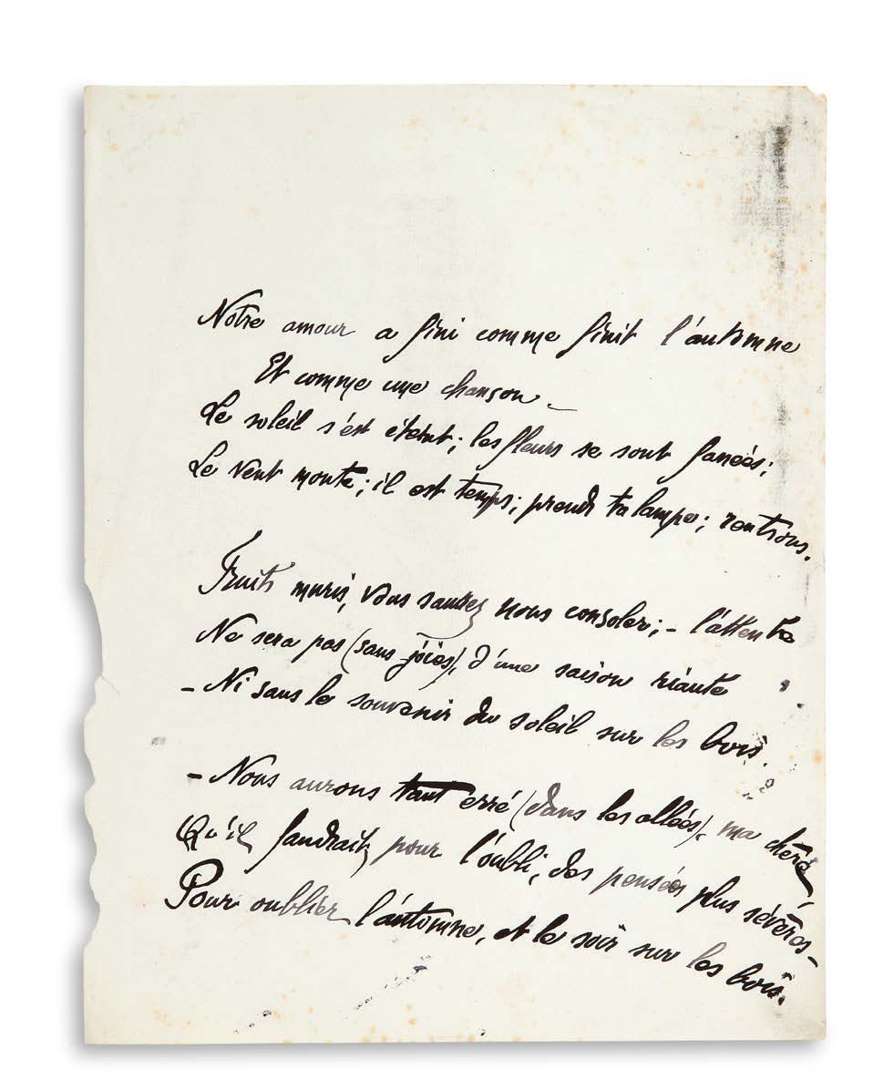 Notre amour a fini comme finit l'automne
Et comme une chanson –
Le soleil s'est éteint ; les fleurs se sont fanées ;
Le vent monte ; il est temps ; prends ta lampe ; rentrons.
Fruits muris, vous saurez nous consoler ; – l'attente
Ne sera pas (sans joies), d'une saison riante
– Ni sans le souvenir du soleil sur les bois.
– Nous aurons tant erré (dans les allées), ma chère,
Qu'il faudrait, pour l'oubli, des pensées plus sévères –
Pour oublier l'automne, et le soir sur les bois.